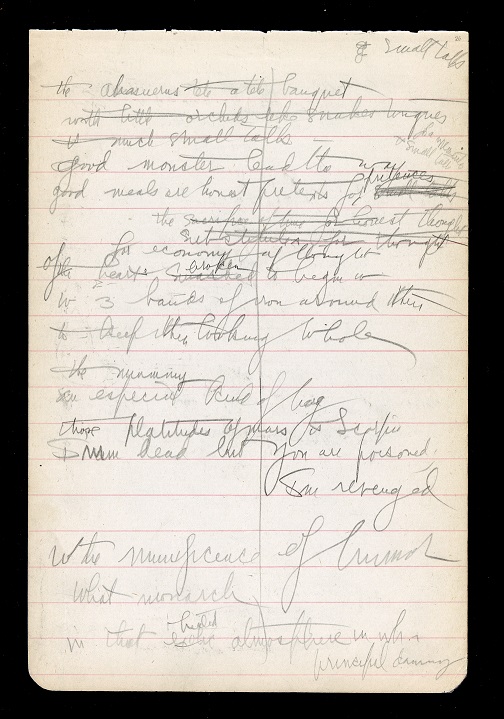 & small talk
the ahasuerus tête a tête banquet
with little orchids like snakes tongues
& much small talk
good monster lead the way
good meals are honest pretexts for pretences
small talk
the sacrifice of time for honest thought
substitution for thought
for economy of thought
of the hearts broken to begin w
w 3 bands of iron around them
to keep them looking whole
the mummy
an especial kind of bag
those platitudes of mars is Scorpio
I'm dead but you are poisoned
I'm revenged
w the munificence of
what monarch
in that heated atmosphere in wh a
principle